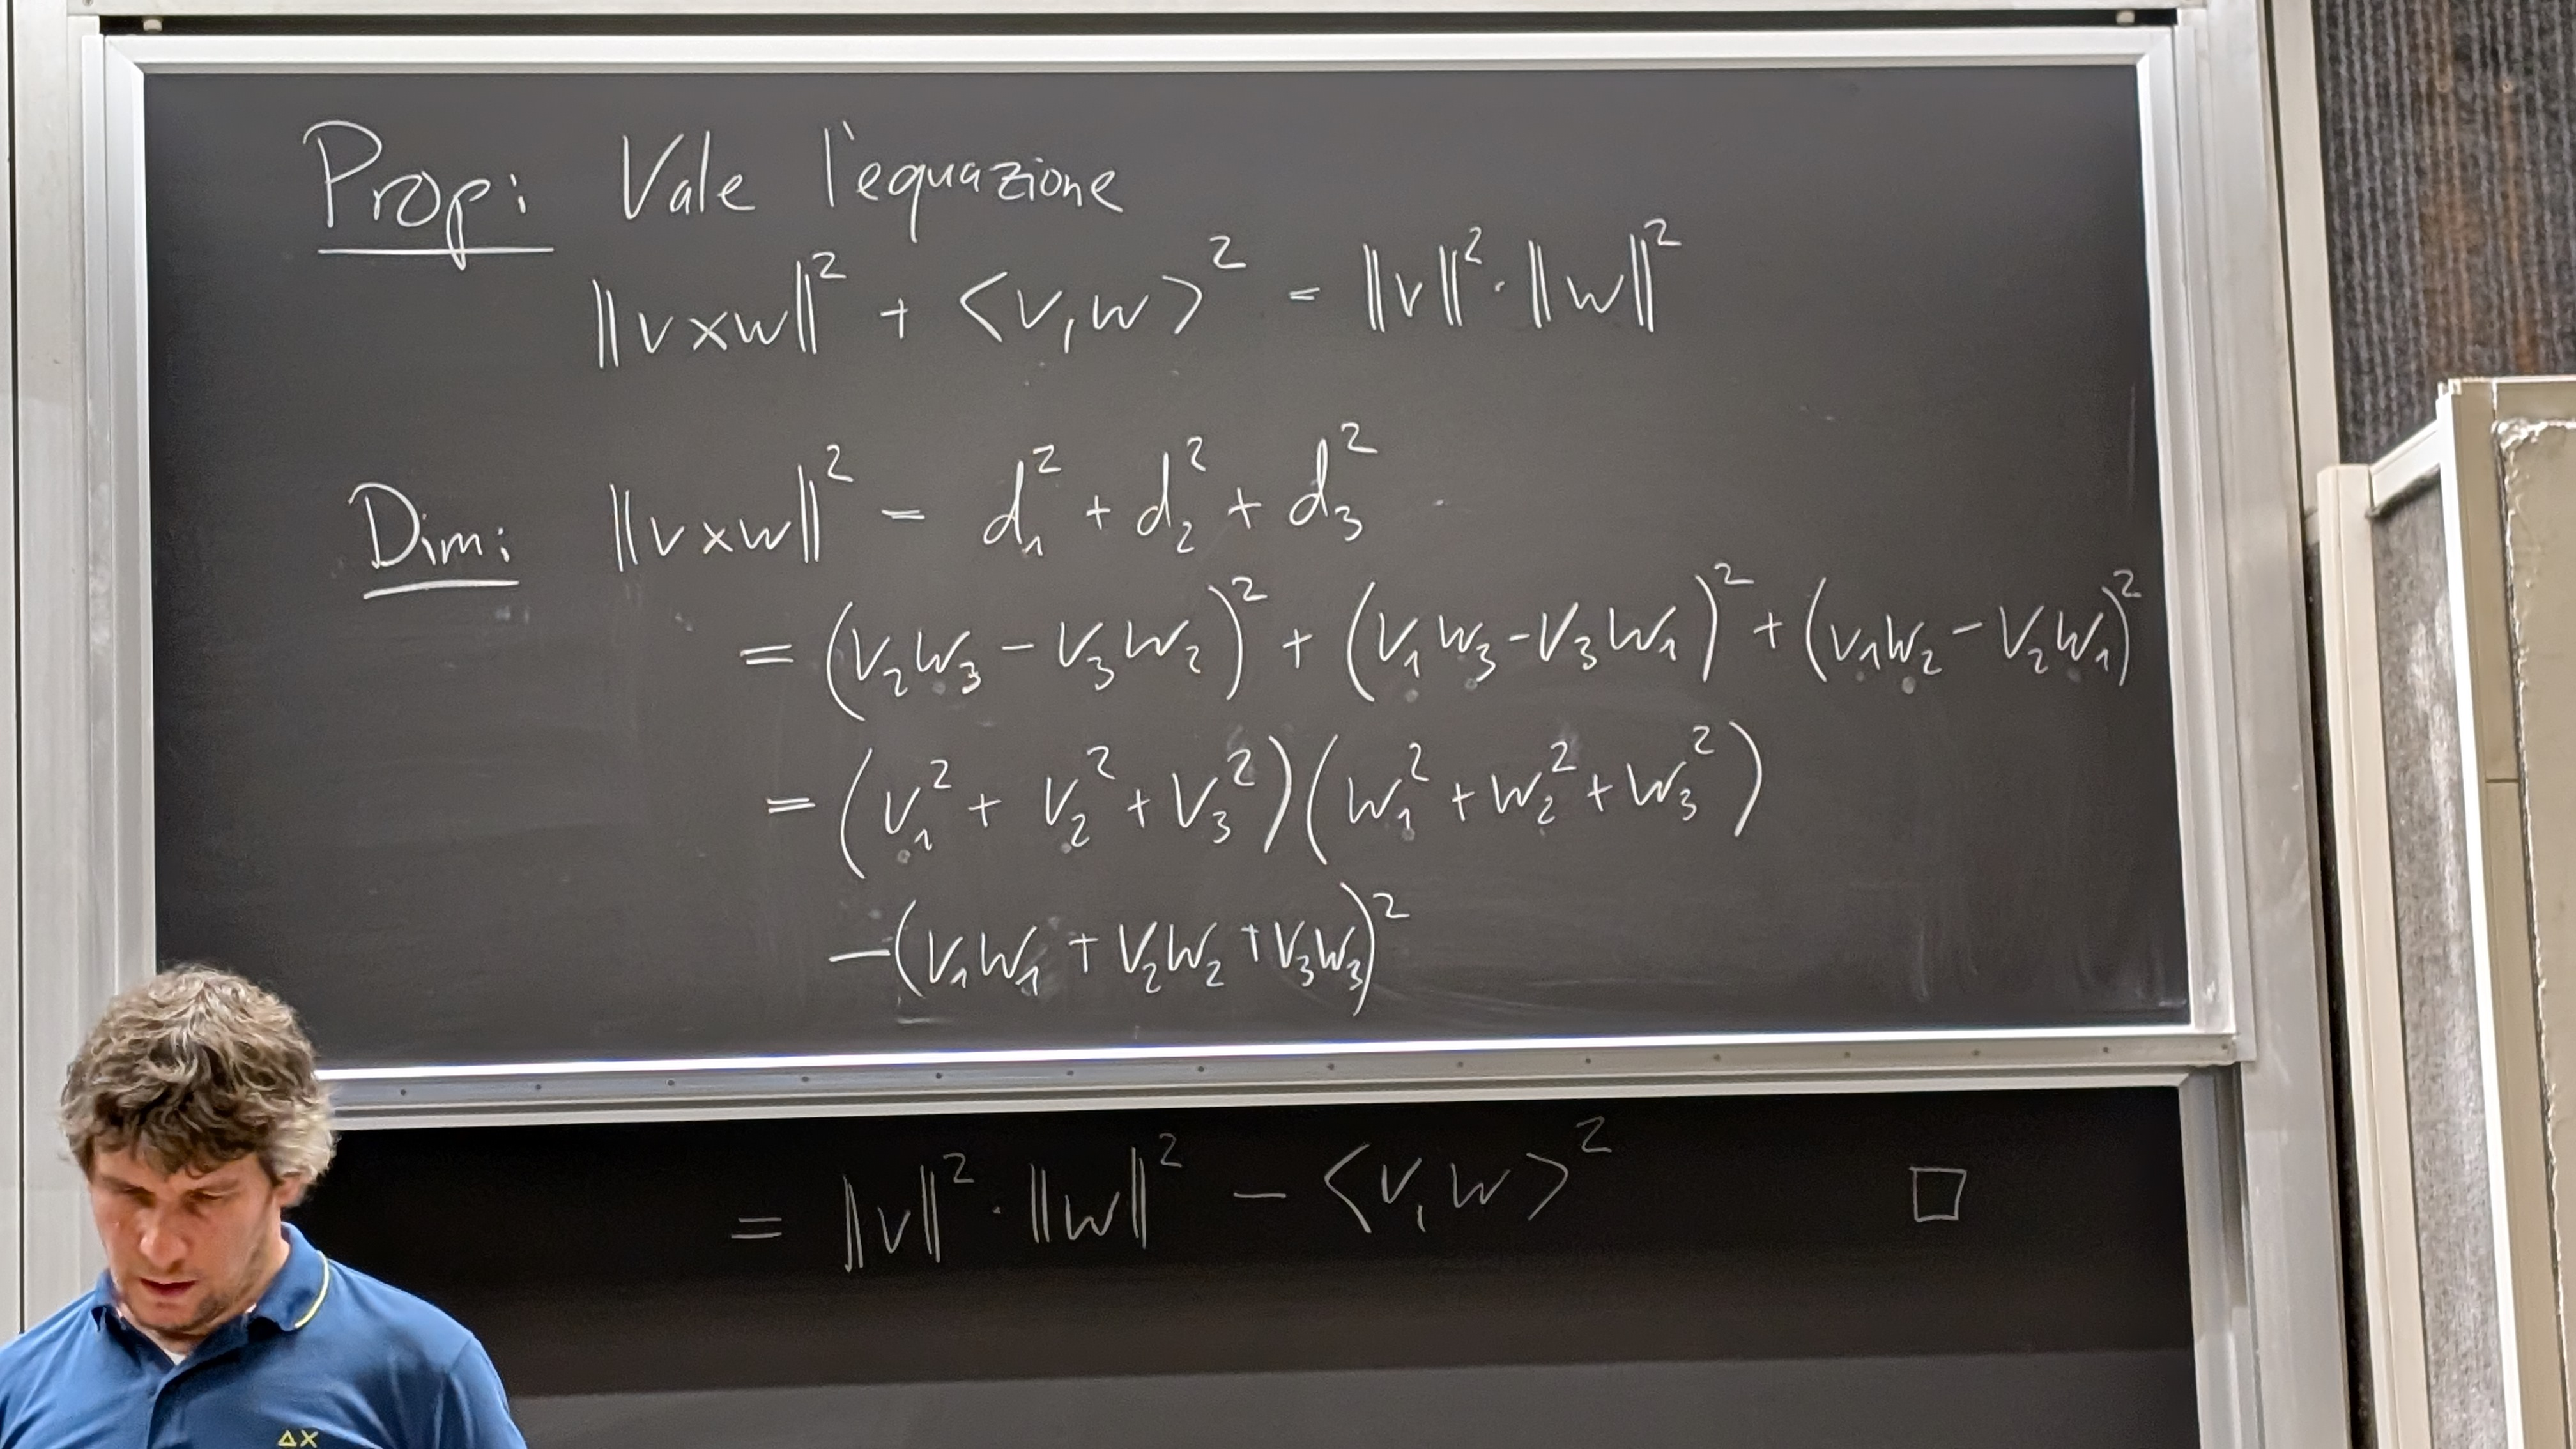 Prop: Vale l'equazione
||v×w||² + <v,w>² = ||v||²·||w||²
Dim: ||v×w||² = d₁² + d₂² + d₃²
= (v₂w₃ - v₃w₂)² + (v₁w₃ - v₃w₁)² + (v₁w₂ - v₂w₁)²
= (v₁² + v₂² + v₃²)(w₁² + w₂² + w₃²)
-(v₁w₁ + v₂w₂ + v₃w₃)²
= ||v||²·||w||² - <v,w>² □
ΔX